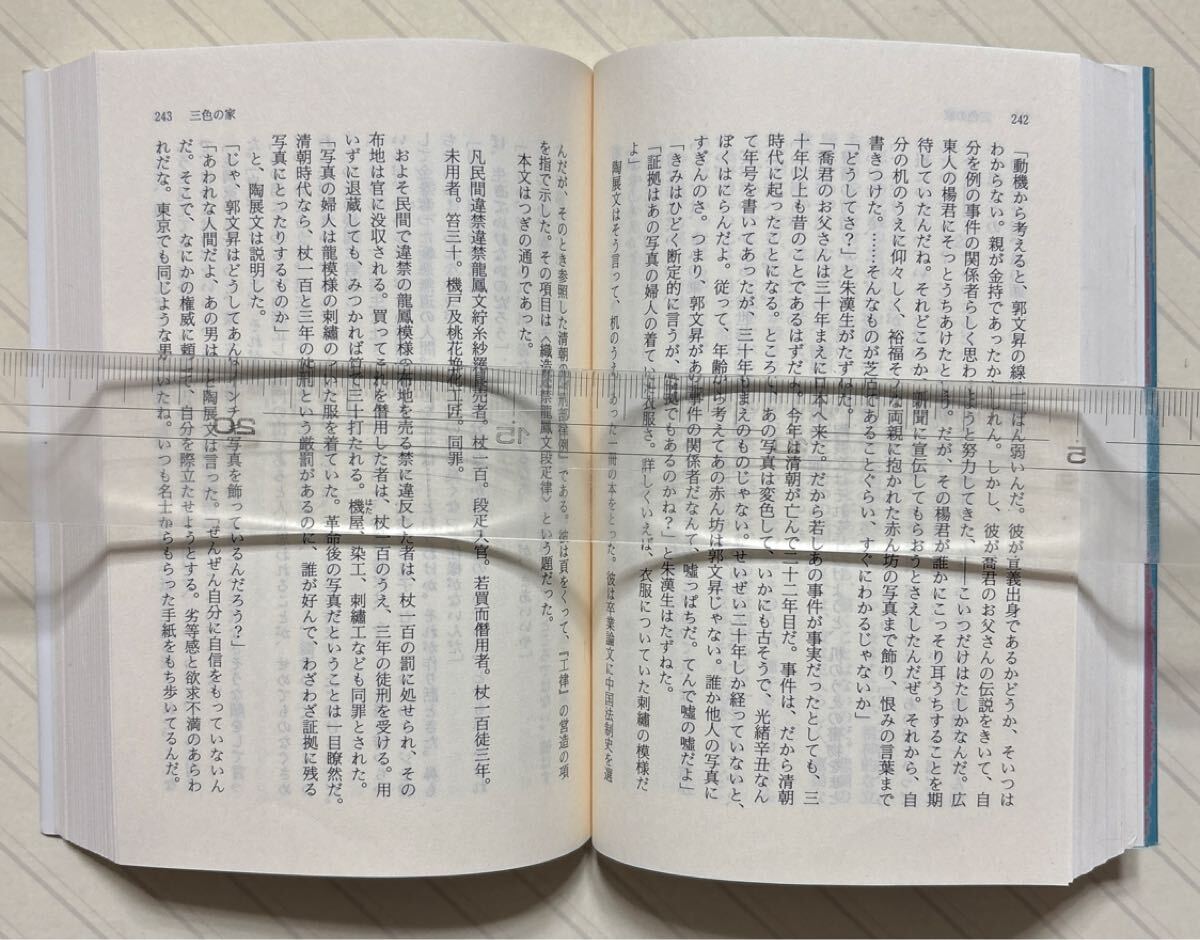 242
「動機から考えると、郭文昇の線が一ばん弱いんだ。彼が宣義出身であるかどうか、そいつは
わからない。親が金持であったかもしれん。しかし、彼が喬君のお父さんの伝説をきいて、自
分を例の事件の関係者らしく思わせようと努力してきた、――こいつだけはたしかなんだ。広
東人の楊君にそっとうちあけたとき。だが、その楊君が誰かにこっそり耳うちすることを期
待していたんだね。それどころか、新聞に宣伝してもらおうとさえしたんだぜ。それから、自
分の机のうえに仰々しく、裕福そうな両親に抱かれた赤ん坊の写真まで飾り、恨みの言葉まで
書きつけた。……そんなものが芝居であることぐらい、すぐにわかるじゃないか」
「どうしてさ？」と朱漢生がたずねた。
「喬君のお父さんは三十年まえに日本へ来た。だから若しあの事件が事実だったとしても、三
十年以上も昔のことであるはずだよ。今年は清朝が亡んで二十二年目だ。事件は、だから清朝
時代に起ったことになる。ところで、あの写真は変色して、いかにも古そうで、光緒辛丑なん
て年号を書いてあったが、三十年もまえのものじゃない。せいぜい二十年しか経っていないと、
ぼくはにらんだよ。従って、年齢から考えてあの赤ん坊は郭文昇じゃない。誰か他人の写真に
すぎんのさ。つまり、郭文昇があの事件の関係者だなんて、嘘っぱちだ。てんで嘘の嘘だよ」
「きみはひどく断定的に言うが、証拠でもあるのかね？」と朱漢生はたずねた。
「証拠はあの写真の婦人の着ていた衣服さ。詳しくいえば、衣服についていた刺繡の模様だ
よ」
陶展文はそう言って、机のうえにあった一冊の本をとった。彼は卒業論文に中国法制史を選
243 三色の家
んだが、そのとき参照した清朝の『刑部律例』である。彼は頁をくって、『工律』の営造の項
を指で示した。その項目は〈織造違禁龍鳳文段疋律〉という題だった。
本文はつぎの通りであった。
凡民間違禁違禁龍鳳文紵糸紗羅売者。杖一百。段疋入官。若買而僭用者。杖一百徒三年。
未用者。笞三十。機戸及桃花挽花工匠。同罪。
おょそ民間で違禁の龍鳳模様の布地を売る禁に違反した者は、杖一百の罰に処せられ、その
布地は官に没収される。買ってこれを僭用した者は、杖一百のうえ、三年の徒刑を受ける。用
いずに退蔵しても、みつかれば笞で三十打たれる。機屋、染工、刺繡工なども同罪とされた。
「写真の婦人は龍模様の刺繡のついた服を着ていた。革命後の写真だということは一目瞭然だ。
清朝時代なら、杖一百と三年の徒刑という厳罰があるのに、誰が好んで、わざわざ証拠に残る
写真にとったりするものか」
と、陶展文は説明した。
「じゃ、郭文昇はどうしてあんなインチキ写真を飾っているんだろう？」
「あわれな人間だよ、あの男は」と陶展文は言った。「ぜんぜん自分に自信をもっていないん
だ。そこで、なにかの権威に頼って、自分を際立たせようとする。劣等感と欲求不満のあらわ
れだな。東京でも同じような男がいたね。いつも名士からもらった手紙をもち歩いてるんだ。
5
15
20